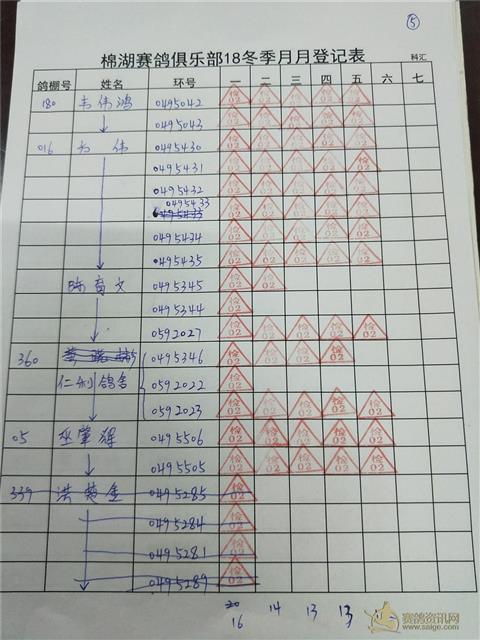 ⑤
棉湖赛鸽俱乐部18冬季月月登记表
科汇
鸽棚号 姓名 环号 一 二 三 四 五 六 七
180 韦伟鸿 0495042 检02 检02 检02 检02 检02
0495043 检02 检02 检02 检02 检02
016 伟 0495430 检02 检02 检02 检02 检02
0495431 检02 检02 检02 检02 检02
0495432 检02 检02 检02 检02 检02
0495433 检02 检02 检02 检02 检02
0495434 检02 检02 检02 检02 检02
0495435 检02 检02 检02 检02 检02
陈育文 0495345 检02 检02
0495344 检02
0592027 检02 检02 检02 检02 检02
360 0495346 检02 检02 检02 检02
仁利鸽舍 0592022 检02
0592023 检02 检02 检02 检02 检02
05 巫肇 0495506 检02 检02 检02 检02 检02
0495505 检02 检02 检02 检02 检02
339 洪楚金 0495285 检02
0495284 检02
0495281 检02
0495289 检02
20
16 14 13 13
赛鸽资讯网
www.saige.com